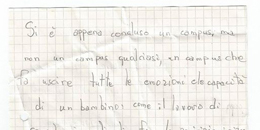 Si è appena concluso un campus, ma
non un campus qualsiasi, un campus che
fa uscire tutte le emozioni e le capacità
di un bambino: come il lavoro di